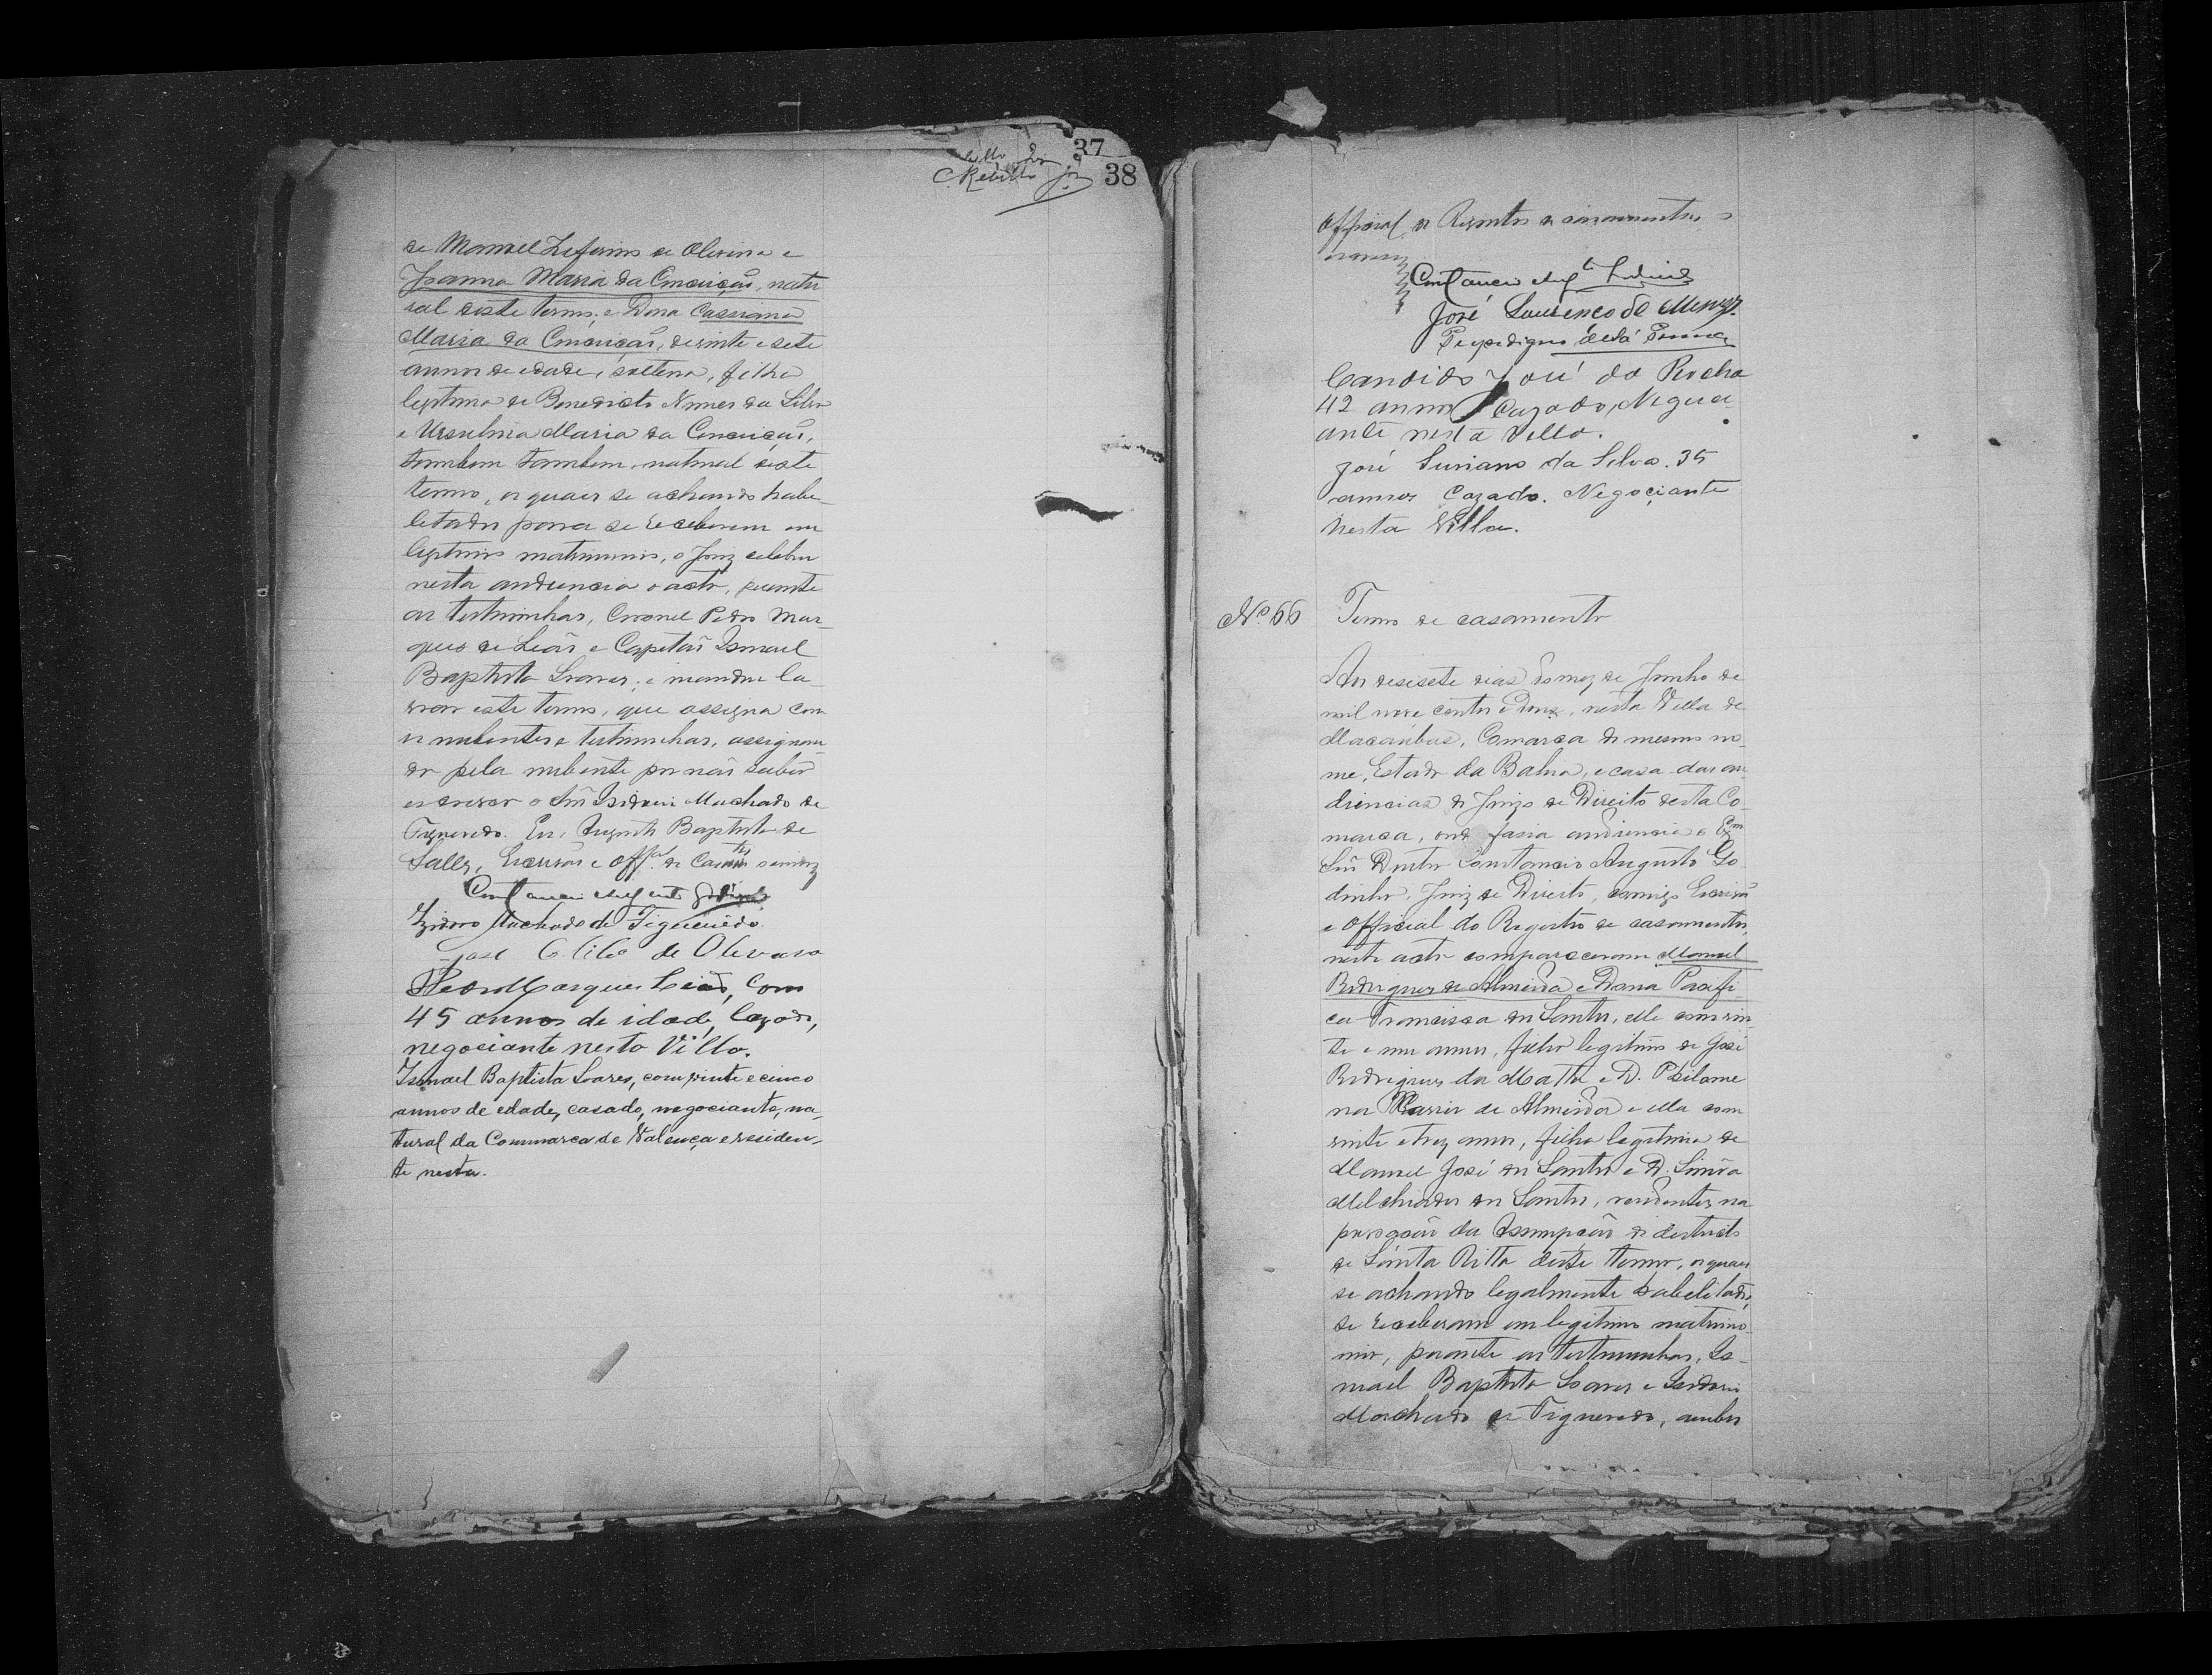 37
C. Rebello Jor 38
de Manoel Zeferino de Oliveira e
Joanna Maria da Conceição, natu
ral deste termo; e Dona Cassiana
Maria da Conceição, de vinte e sete
annos de edade, solteira, filha
legitima de Benedicto Nunes da Silva
e Ursulina Maria da Conceição,
tambem tambem natural deste
termo, os quaes se achando habe_
letados para se receberem em
legitimo matrimonio, o Juiz celebrou
nesta audiencia o acto, perante
as testiminhas, Coronel Pedro Mar_
ques de Leão e Capitão Ismael
Baptista Soares; e mandou la_
vrar este termo, que assigna com
os nubentes e testiminhas, assignan_
do pela nubente por não saber
escrever o Snr Izidoro Machado de
Figueredo. Eu, Augusto Baptista de
Salles, Escrivão e Offal de Casamtos
Constancio Augusto Godinho
Izidoro Machado de Figueirêdo.
José de Olivera
Pedro Marques Leão, Com
45 annos de idade, Cazado,
negociante nesta Villa.
Ismael Baptista Soares, com vinte e cinco
annos de edade, casado, negociante, na_
tural da Commarca de Valença e residen_
te nesta.
Official do Registro de casamentos o
escrevy
Constancio Augto Godinho
José Lourenço de Menezes.
de Sá
Candido José da Rocha
42 annos Cazado, Negoci
ante nesta Villa.
José Suriano da Silva. 35
annos Cazado. Negociante
nesta Villa.
No. 66 Termo de casamento
Aos desisete dias do mez de Junho de
mil nove centos e , nesta Villa de
Macaubas, Comarca do mesmo no_
me, Estado da Bahia, e casa das au_
diencias do Juizo de Direito desta Co_
marca, onde fasia audiencia o Exm
Snr Doutor Constancio Augusto Go
dinho, Juiz de Direito, comigo Escrivão
e Official do Registro de casamentos,
neste acto compareceram Manoel
Rodrigues de Almeida e Dona Pacifi_
ca Francisca dos Santos, elle com vin_
te e um annos, filho legitimo de José
Rodrigues da Matta e D. Philome
na Maria de Almeida e ella com
vinte e trez annos, filha legitima de
Manoel José dos Santos e D.
Melchiades dos Santos, residentes na
povoação da Assumpção do destricto
de Santa Ritta deste termo, os quaes
se achando legalmente habelitados,
se receberam em legitimo matrimo_
nio, perante as testemunhas, Is_
mael Baptista Soares e Isidorio
Machado de Figueredo, ambos